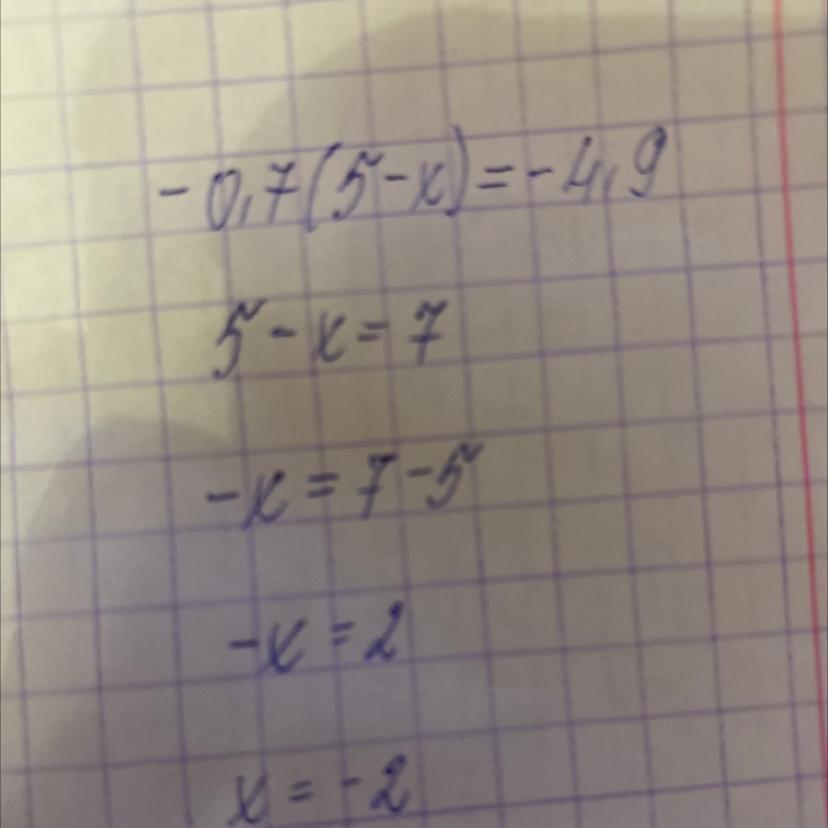 -0,7(5-x)=-4,9
5-x=7
-x=7-5
-x=2
x=-2